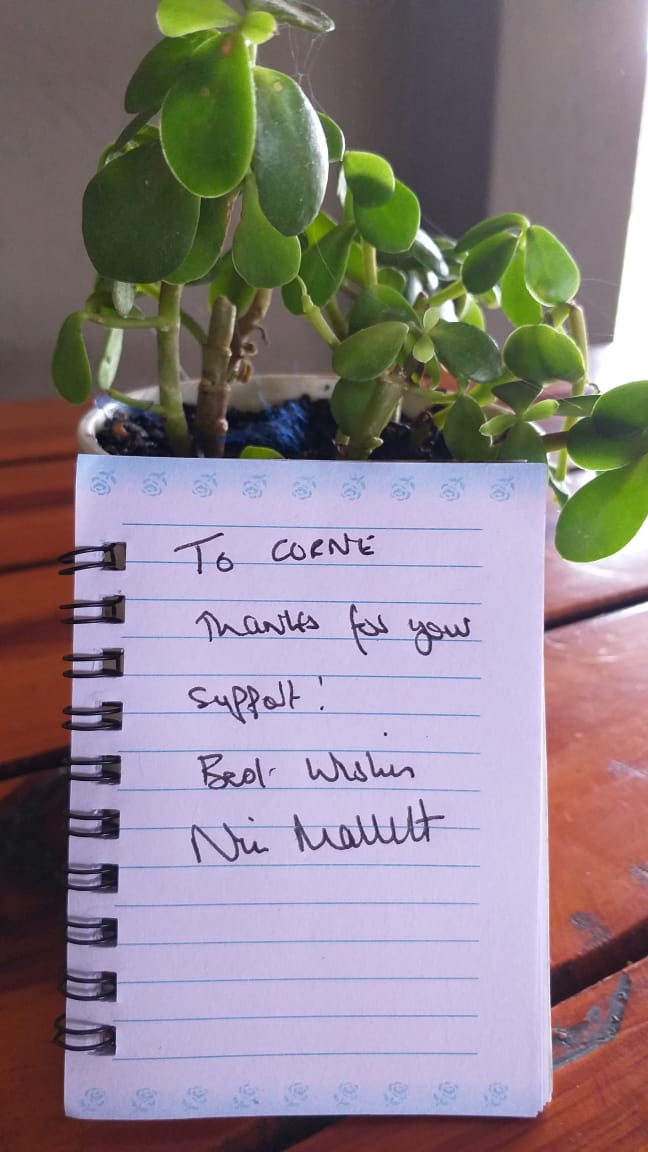 To CORNE
Thanks for your
support!
Best Wishes
Nick Mallett